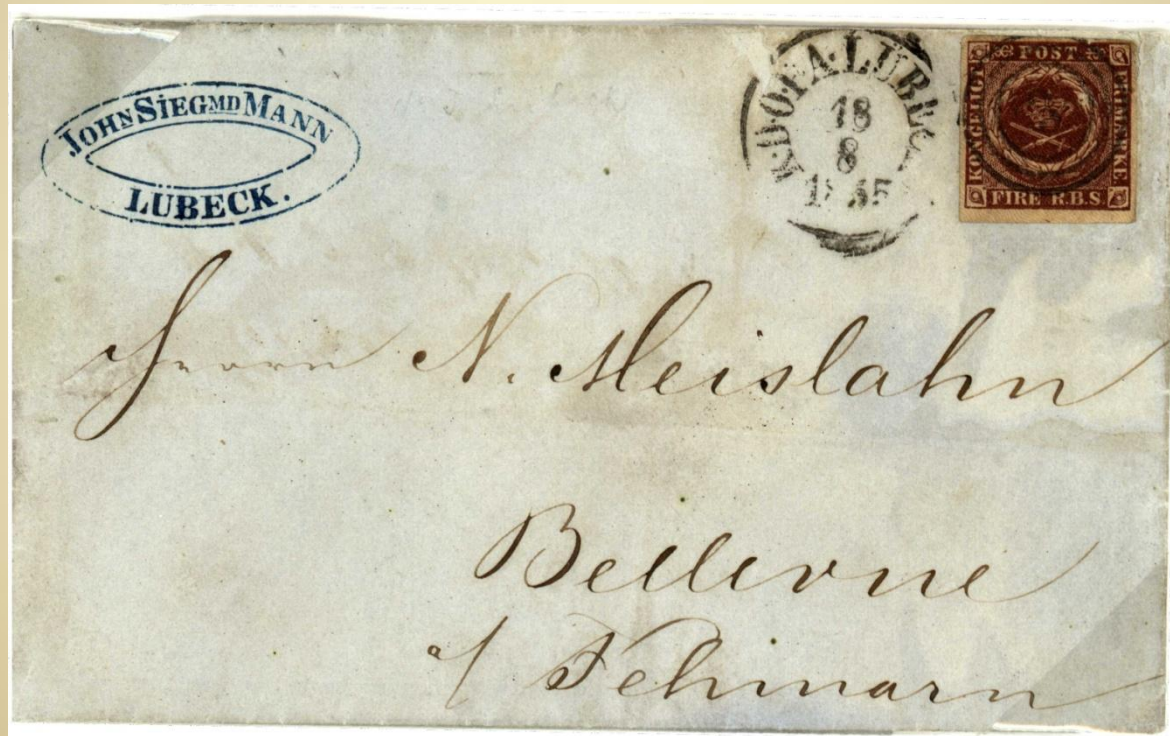 JOHN SIEGMD MANN
LÜBECK.
K.D.O.P.A. LÜBECK
18
8
1855
KONGELIGT
POST
FRIMÆRKE
FIRE R.B.S.
Herrn N. Meislahn
Bellevue
a/ Fehmarn